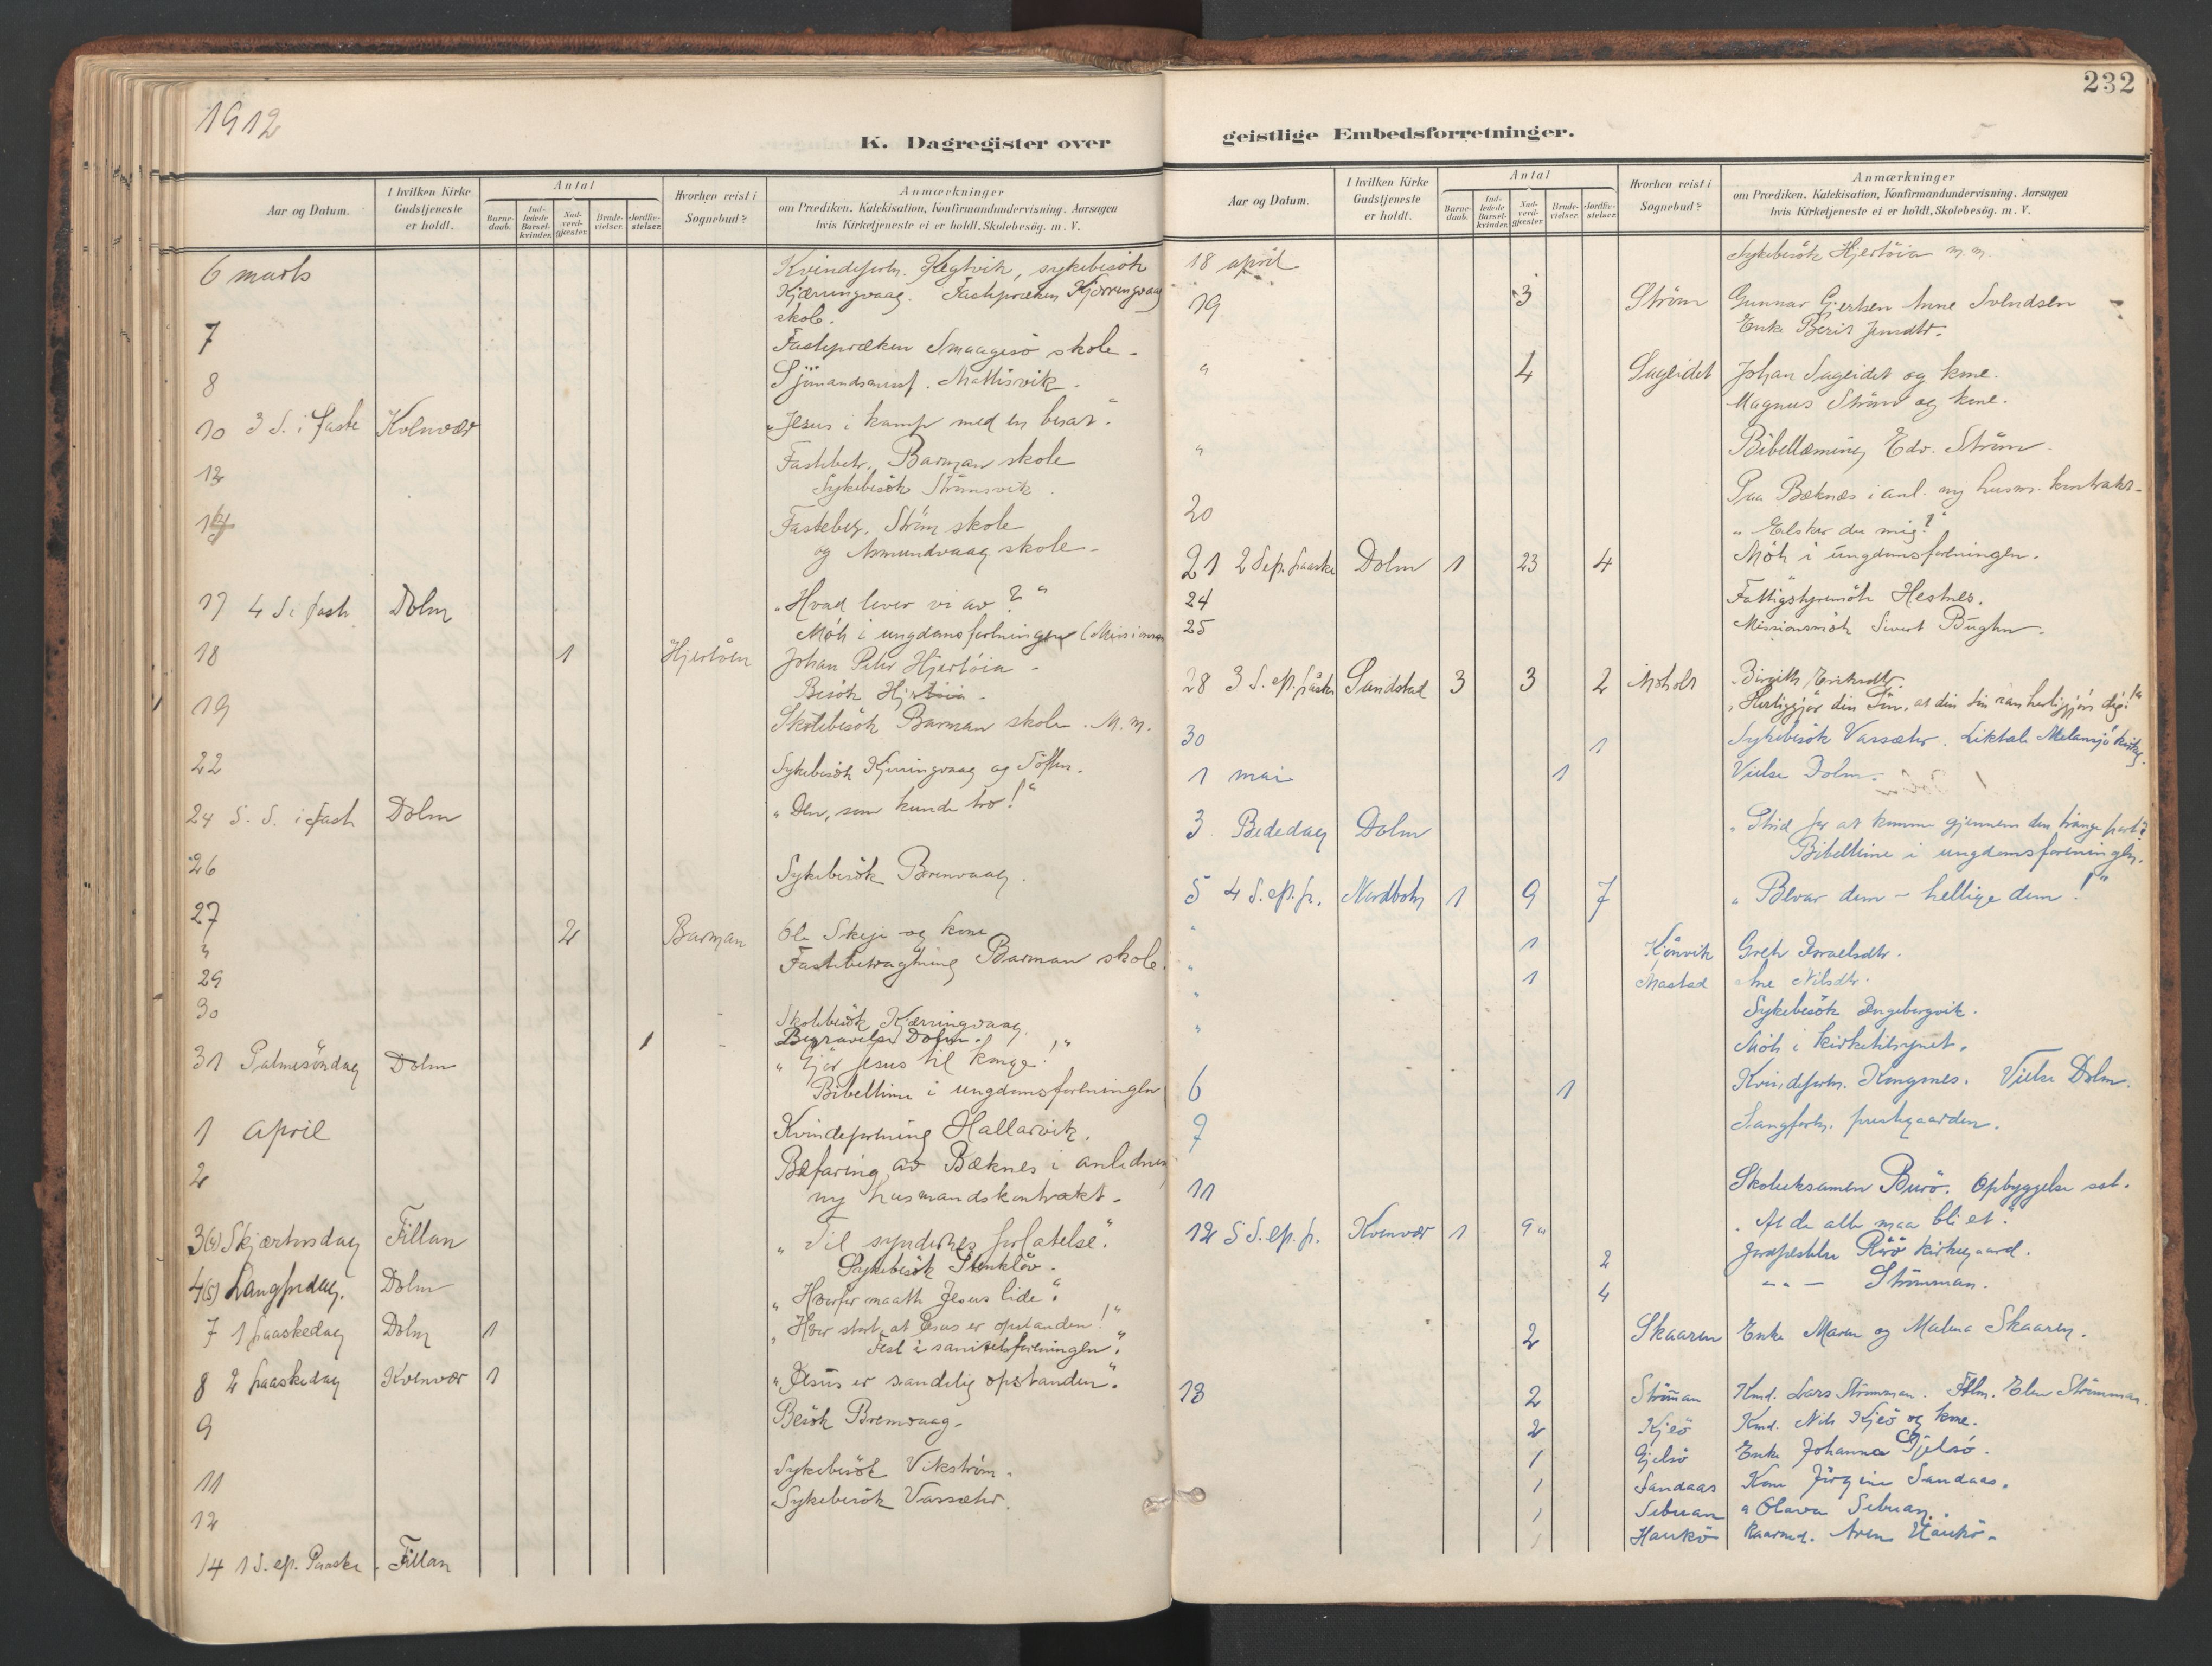 1912
K. Dagregister over
Aar og Datum.
I hvilken Kirke Gudstjeneste er holdt.
Antal
Barnedaab.
Indledede Barselkvinder.
Nadverdgjæster.
Brudevielser.
Jordfæstelser.
Hvorhen reist i Sognebud?
Anmærkninger
om Prædiken, Katekisation, Konfirmandundervisning, Aarsagen
hvis Kirketjeneste ei er holdt, Skolebesøg. m. V.
6 marts Kvindeforn. Hegtvik, sykebesök
Kjærringvaag. Fastepræken Kjærringvaag
skole.
7 Fastepræken Smaagesö skole -
8 Sjömandsmissf. Mattisvik -
10 3 S. i faste Kvenvær "Jesus i kamp med en besat".
12 Fastebetr. Barman skole
Sykebesök Strömsvik.
14 Fastebetr. Ström skole
og Asmundvaag skole -
17 4 S. i faste Dolm "Hvad lever vi av?"
Möte i ungdomsforeningen
18 1 Hjertöen Johan Peter Hjertöia -
Besök Hjertöia -
19 Skolebesök Barman skole. M. m.
22 Sykebesök Kjerringvaag og Söften.
24 5. S. i faste Dolm "Den, som kunde tro!"
26 Sykebesök Bremvaag.
27 2 Barman Ole Skeje og kone
" Fastebetragtning Barman skole.
29
30 Skolebesök Kjærringvaag.
1 Begravelse Dolm.
31 Palmesöndag Dolm "Gjör Jesus til konge!"
Bibeltime i ungdomsforeningen
1 april Kvindeforening Hallarvik.
2 Befaring av Bæknes i anledning
ny husmandskontrakt -
3(4) Skjærtorsdag Fillan "Til syndernes forlatelse".
Sykebesök Stenklöv -
4(5) Langfredag. Dolm "Hvorfor maatte Jesus lide".
7 1 paaskedag Dolm 1 "Hvor stort, at Jesus er opstanden!"
Fest i sanitetsforeningen.
8 2 paaskedag Kvenvær 1 "Jesus er sandelig opstanden".
9 Besök Bremvaag -
11 Sykebesök Vikström -
12 Sykebesök Vassæter.
14 1 S. ep. Paaske - Fillan
232
geistlige Embedsforretninger.
Aar og Datum.
I hvilken Kirke Gudstjeneste er holdt.
Antal
Barnedaab.
Indledede Barselkvinder.
Nadverdgjæster.
Brudevielser.
Jordfæstelser.
Hvorhen reist i Sognebud?
Anmærkninger
om Prædiken, Katekisation, Konfirmandundervisning, Aarsagen
hvis Kirketjeneste ei er holdt, Skolebesög. m. V.
18 april Sykebesök Hjertöia m. m.
19 3 Ström Gunnar Gjertsen Anne Svendsen
Enke Berit
" 4 Sageidet Johan Sageidet og kone.
Magnus Ström og kone.
" Edv. Ström.
20 Paa Bæknes i anl. ny husm. kontrakt -
"Elsker du mig?"
21 2 S. ep. paaske Dolm 1 23 4 Möte i ungdomsforeningen.
24 Fattigstyremöte Hestnes.
25 Missionsmöte Sivert
28 3 S. ep. påske Sandstad 3 3 2 Moholt Birgitte Eriksdtr.
"Herliggjör din Sön, at din sön kan herliggjöre dig!"
30 1 Sykebesök Vassæter. Liktale Melansjö kirkeg.
1 mai 1 Vielse Dolm.
3 Bededag Dolm "Strid for at komme gjennem den trange port"
Bibeltime i ungdomsforeningen.
5 4 S. ep. p. Nordbotn 1 9 7 "Bevar dem - hellige dem!"
" 1 Kjönvik Grete Israelsdtr.
" 1 Mastad Ane Nilsdtr.
" Sykebesök Ingebergvik.
" Möte i kirketilsynet.
6 1 Kvindeforn. Kongsnes. Vielse Dolm.
7 Sangforn. prestgaarden.
11 Skoleeksamen Burö. Opbyggelse sst.
12 5 S. ep. p. Kvenvær 1 9 "At de alle maa bli et".
2 Jordfestelse kirkegaard.
4 - " - Strömman.
2 Skaaren Enke Maren og Malena Skaaren.
13 2 Ströman Kmd. Lars Strömman. Elen Strömman.
2 Kjeö Kmd. Nils Kjeö og kone.
1 Gjelsö Enke Johanna Gjelsö.
1 Sandaas Kone Jörgine Sandaas.
1 Sebuan " Olava Sebuan.
1 Haukö Haukö -